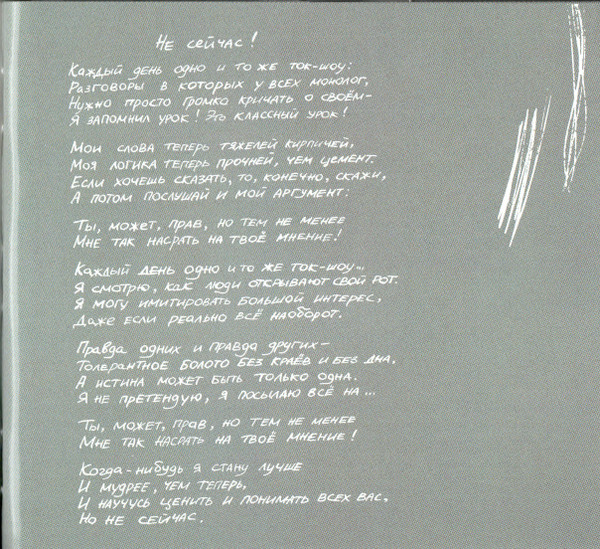 Не сейчас!
Каждый день одно и то же ток-шоу:
Разговоры в которых у всех монолог,
Нужно просто громко кричать о своём-
Я запомнил урок! Это классный урок!
Мои слова теперь тяжелей кирпичей,
Моя логика теперь прочней, чем цемент.
Если хочешь сказать, то, конечно, скажи,
А потом послушай и мой аргумент:
Ты, может, прав, но тем не менее
Мне так насрать на твоё мнение!
Каждый день одно и то же ток-шоу...
Я смотрю, как люди открывают свой рот.
Я могу имитировать большой интерес,
Даже если реально всё наоборот.
Правда одних и правда других-
Толерантное болото без краёв и без дна.
А истина может быть только одна.
Я не претендую, я посылаю всё на...
Ты, может, прав, но тем не менее
Мне так насрать на твоё мнение!
Когда-нибудь я стану лучше
И мудрее, чем теперь,
И научусь ценить и понимать всех вас,
Но не сейчас.